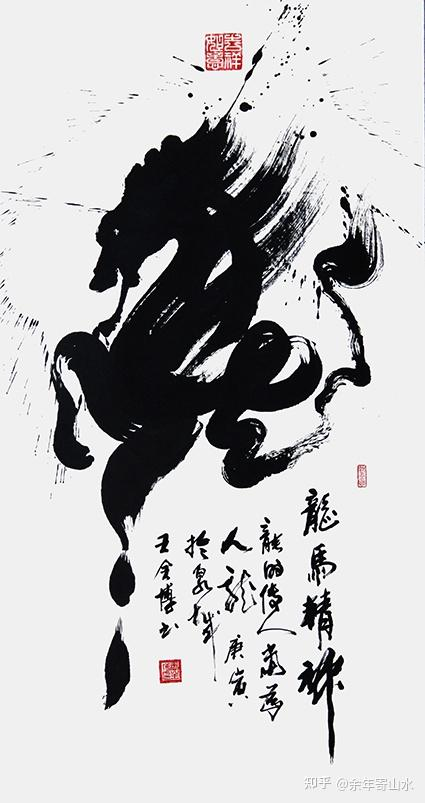 吉祥
如意
龍馬精神
龍的傳人當為
人龍 庚寅
於泉城
王金博书
知乎 @余年寄山水